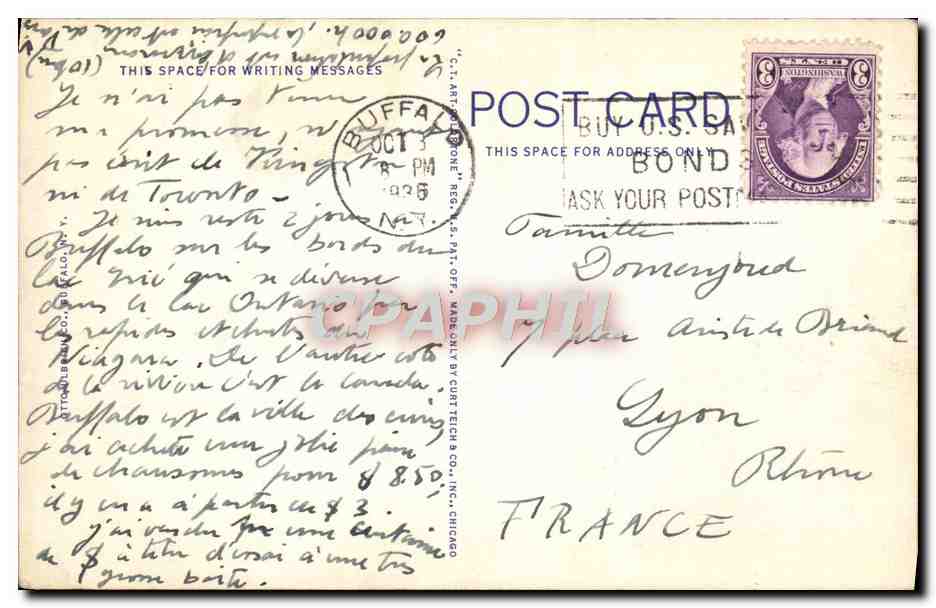 THIS SPACE FOR WRITING MESSAGES
Je n'ai pas tenu
ma promesse, n'ayant
pas écrit de Kingston
ni de Toronto.
Je suis resté 2 jours à
Buffalo sur les bords du
lac Erié qui se déverse
dans le lac Ontario par
les rapides et chutes du
Niagara. De l'autre côté
de la rivière c'est le Canada.
Buffalo est la ville des cuirs,
j'ai acheté une jolie paire
de chaussures pour $ 8.50,
il y en a à partir de $ 3.
j'ai vendu que une centaine
de $ à titre d'essai à une très
grosse boîte.
La population est d'environ
600.000 h. La superficie est celle de Paris
OTTO ULBRICH CO., BUFFALO, N. Y.
"C.T. ART-COLORTONE" REG. U.S. PAT. OFF. MADE ONLY BY CURT TEICH & CO., INC., CHICAGO
POST CARD
THIS SPACE FOR ADDRESS ONLY
BUFFALO
OCT 3
8 PM
1936
N.Y.
BUY U.S. SA
BOND
ASK YOUR POSTM
3 CENTS 3
WASHINGTON
UNITED STATES POSTAGE
Famille
Domenjoud
7 place Aristide Briand
Lyon
Rhône
FRANCE
CPAPHIL